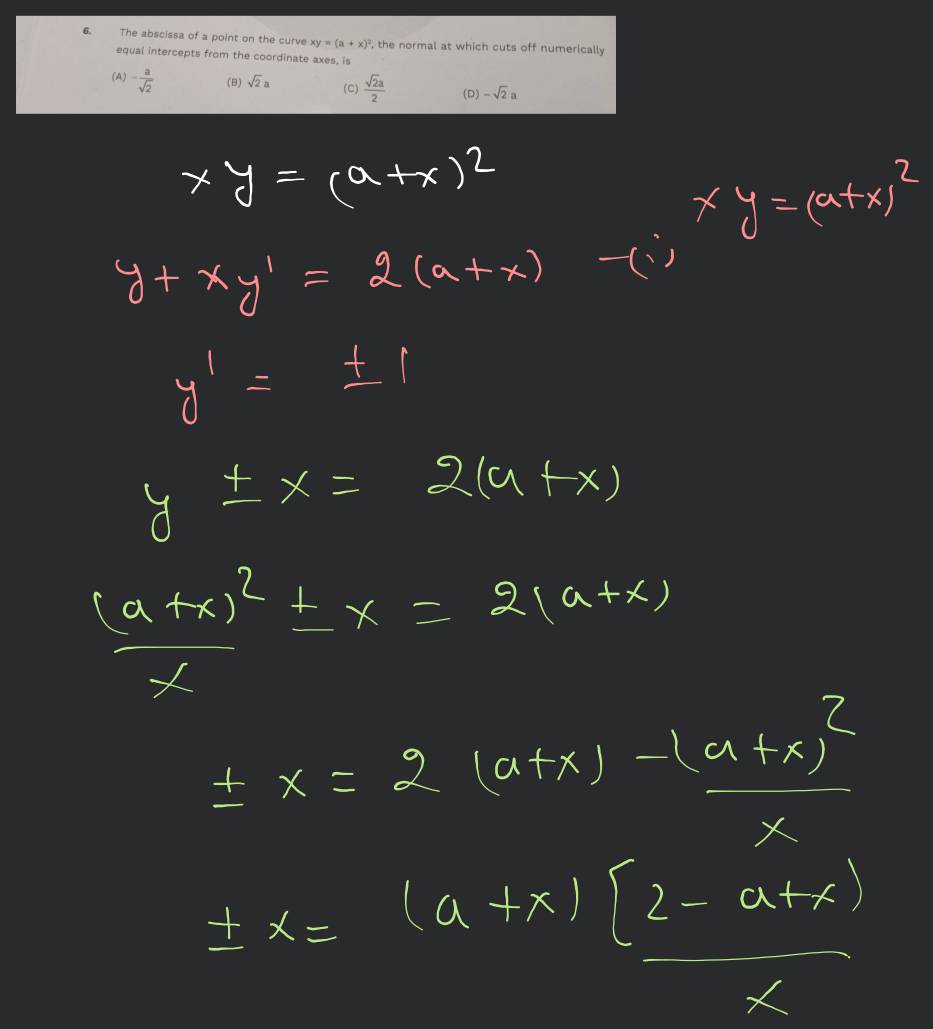 6. The abscissa of a point on the curve xy = (a + x)², the normal at which cuts off numerically
equal intercepts from the coordinate axes, is
(A) -a/√2 (B) √2 a (C) √2a/2 (D) - √2 a
xy = (a+x)²
xy = (a+x)²
y + xy' = 2(a+x) -(i)
y' = ± 1
y ± x = 2(a+x)
(a+x)²/x ± x = 2(a+x)
± x = 2 (a+x) - (a+x)²/x
± x = (a+x) [2 - a+x)/x